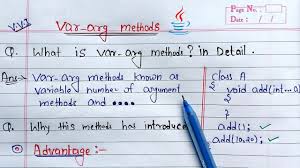 VVI
Var-arg methods
Java
Page No.
Date: / /
Q. What is var-arg methods? in Detail.
Ans:- Var-arg methods known as
variable number of argument
methods and ....
class A
{
void add(int...a)
{
}
add(); ✓
add(10,20); ✓
Q. Why this methods has introduced
Advantage:-